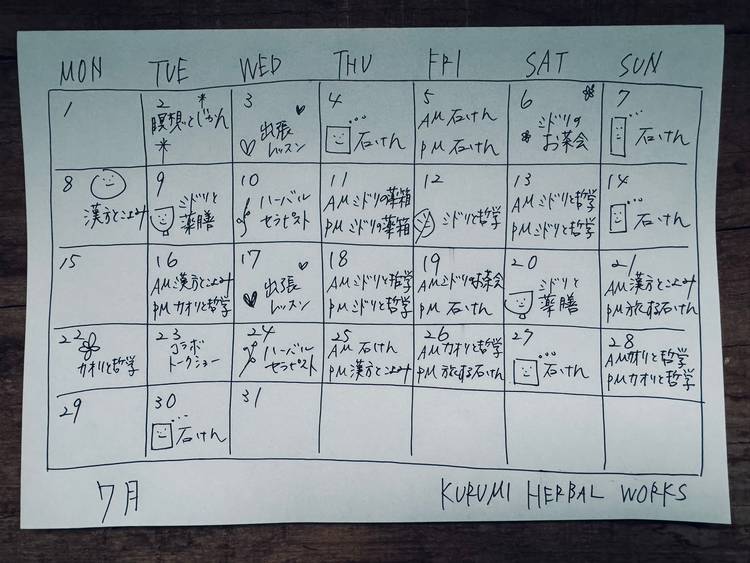 MON TUE WED THU FRI SAT SUN
1
2
瞑想とじかん
3
出張
レッスン
4
石けん
5
AM 石けん
PM 石けん
6
ミドリの
お茶会
7
石けん
8
漢方とこよみ
9
ミドリと
薬膳
10
ハーバル
セラピスト
11
AM ミドリの薬箱
PM ミドリの薬箱
12
ミドリと哲学
13
AM ミドリと哲学
PM ミドリと哲学
14
石けん
15
16
AM 漢方とこよみ
PM カオリと哲学
17
出張
レッスン
18
AM ミドリと哲学
PM ミドリと哲学
19
AM ミドリのお茶会
PM 石けん
20
ミドリと
薬膳
21
AM 漢方とこよみ
PM 旅する石けん
22
カオリと哲学
23
コラボ
トークショー
24
ハーバル
セラピスト
25
AM 石けん
PM 漢方とこよみ
26
AM カオリと哲学
PM 旅する石けん
27
石けん
28
AM カオリと哲学
PM カオリと哲学
29
30
石けん
31
7月
KURUMI HERBAL WORKS